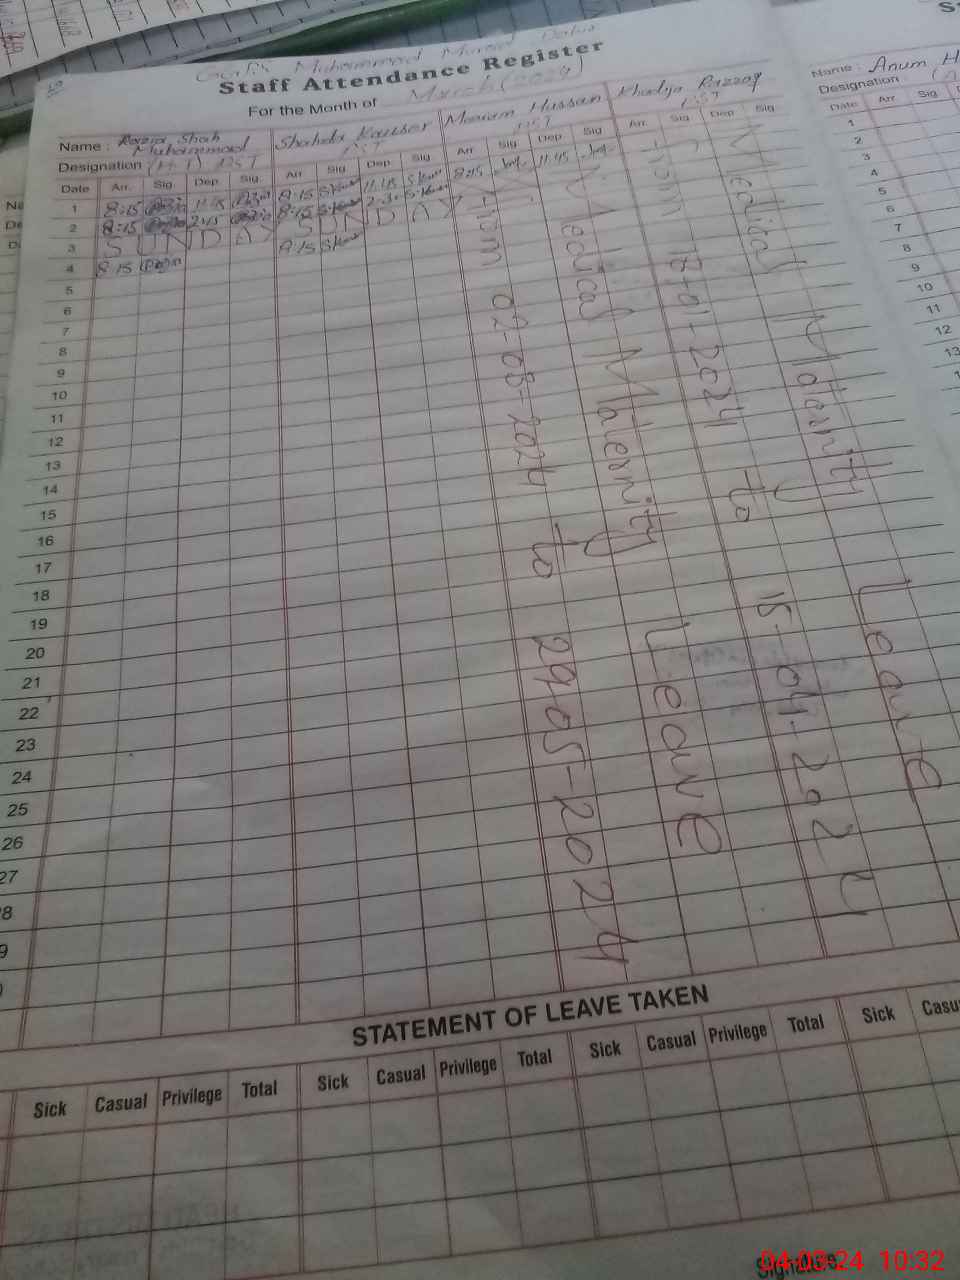 Staff Attendance Register
For the Month of March (2024)
Name : Razia Shah Muhammad Shahida Kauser Mariam Hussain Khadija Razzaq
Designation (H.T) PST PST PST PST
Date Arr. Sig. Dep. Sig. Arr. Sig. Dep. Sig. Arr. Sig. Dep. Sig. Arr. Sig. Dep. Sig.
1 8:15 11:45 8:15 S.Kauser 11:45 S.Kauser 8:15 11:45
2 8:15 2:15 8:15 S.Kauser 2:30 S.Kauser
3 SUNDAY SUNDAY
4 8:15 8:15 S.Kauser
5
6
7
8
9
10
11
12
13
14
15
16
17
18
19
20
21
22
23
24
25
26
27
Medical Maternity Leave
from 02-03-2024 to 29-05-2024
Medical Maternity Leave
from 17-01-2024 to 15-04-2024
STATEMENT OF LEAVE TAKEN
Sick Casual Privilege Total Sick Casual Privilege Total Sick Casual Privilege Total Sick
Signature
Name : Anum
Designation :
Date Arr. Sig.
1
2
3
4
5
6
7
8
9
10
11
12
13
04-03-24 10:32